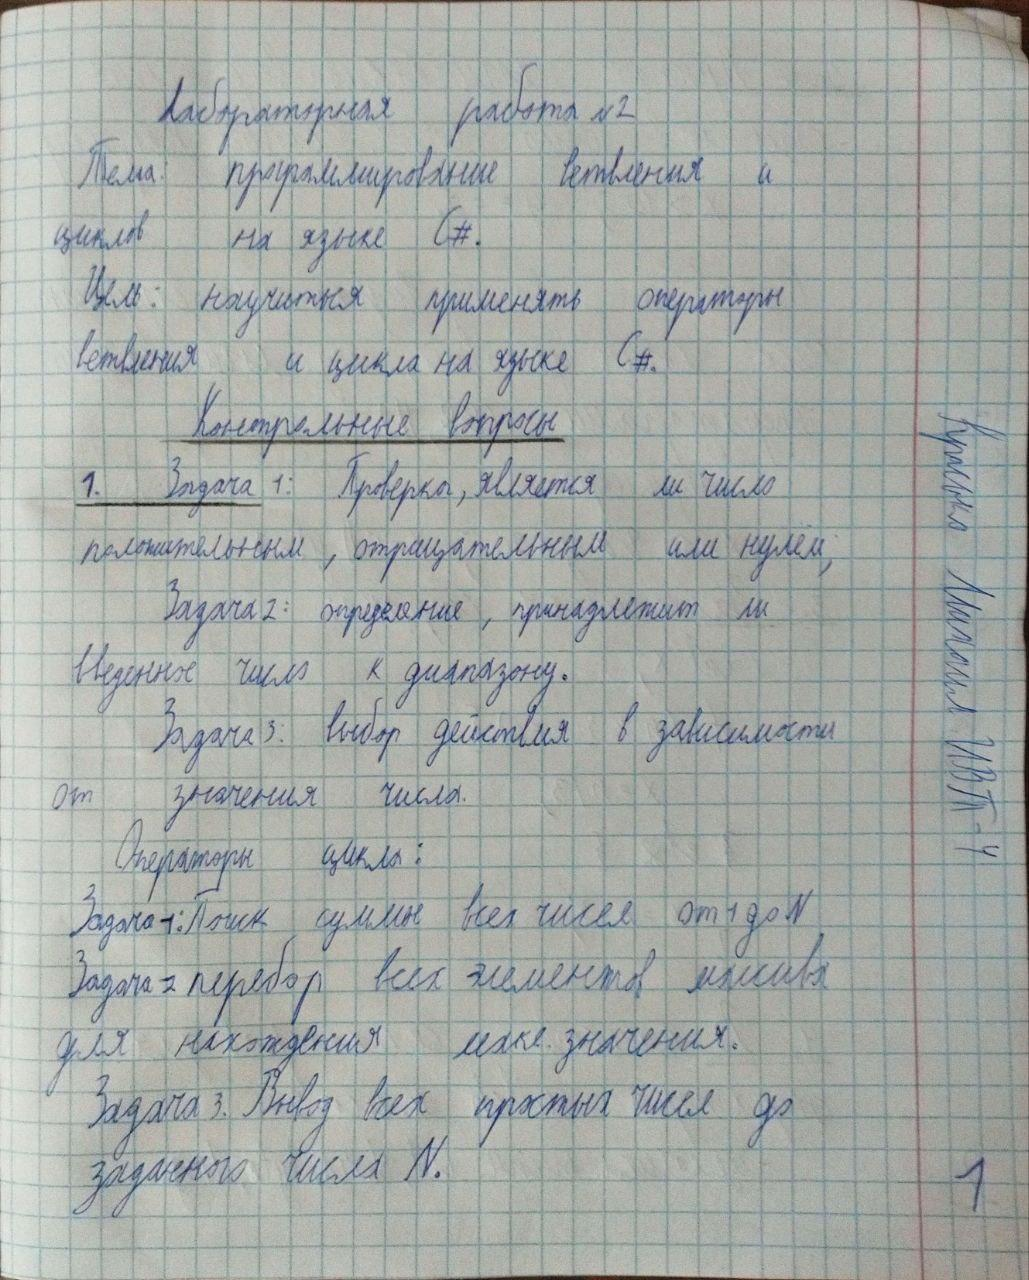 Лабораторная работа №2
Тема: программирование ветвления и
циклов на языке C#.
Цель: научиться применять операторы
ветвления и цикла на языке C#.
Контрольные вопросы
1. Задача 1: Проверка, является ли число
положительным, отрицательным или нулём;
Задача 2: определение, принадлежит ли
введенное число к диапазону.
Задача 3: выбор действия в зависимости
от значения числа.
Операторы цикла:
Задача-1: Поиск суммы всех чисел от 1 до N
Задача-2 перебор всех элементов массива
для нахождения макс. значения.
Задача 3. Вывод всех простых чисел до
заданного числа N.
Михаил ИВТ-4
1